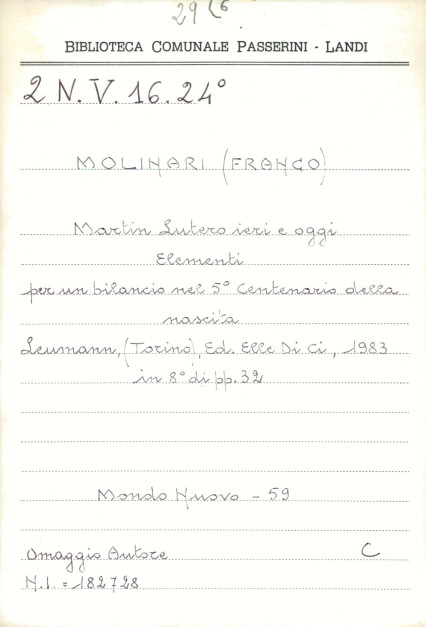 29 26
BIBLIOTECA COMUNALE PASSERINI - LANDI
2 N. V. 16. 24°
MOLINARI (FRANCO)
Martin Lutero ieri e oggi
Elementi
per un bilancio nel 5° Centenario della
nascita
Leumann, (Torino), Ed. Elle Di Ci, 1983
in 8° di pp. 32
Mondo Nuovo - 59
Omaggio Autore C
N.I. = 182728